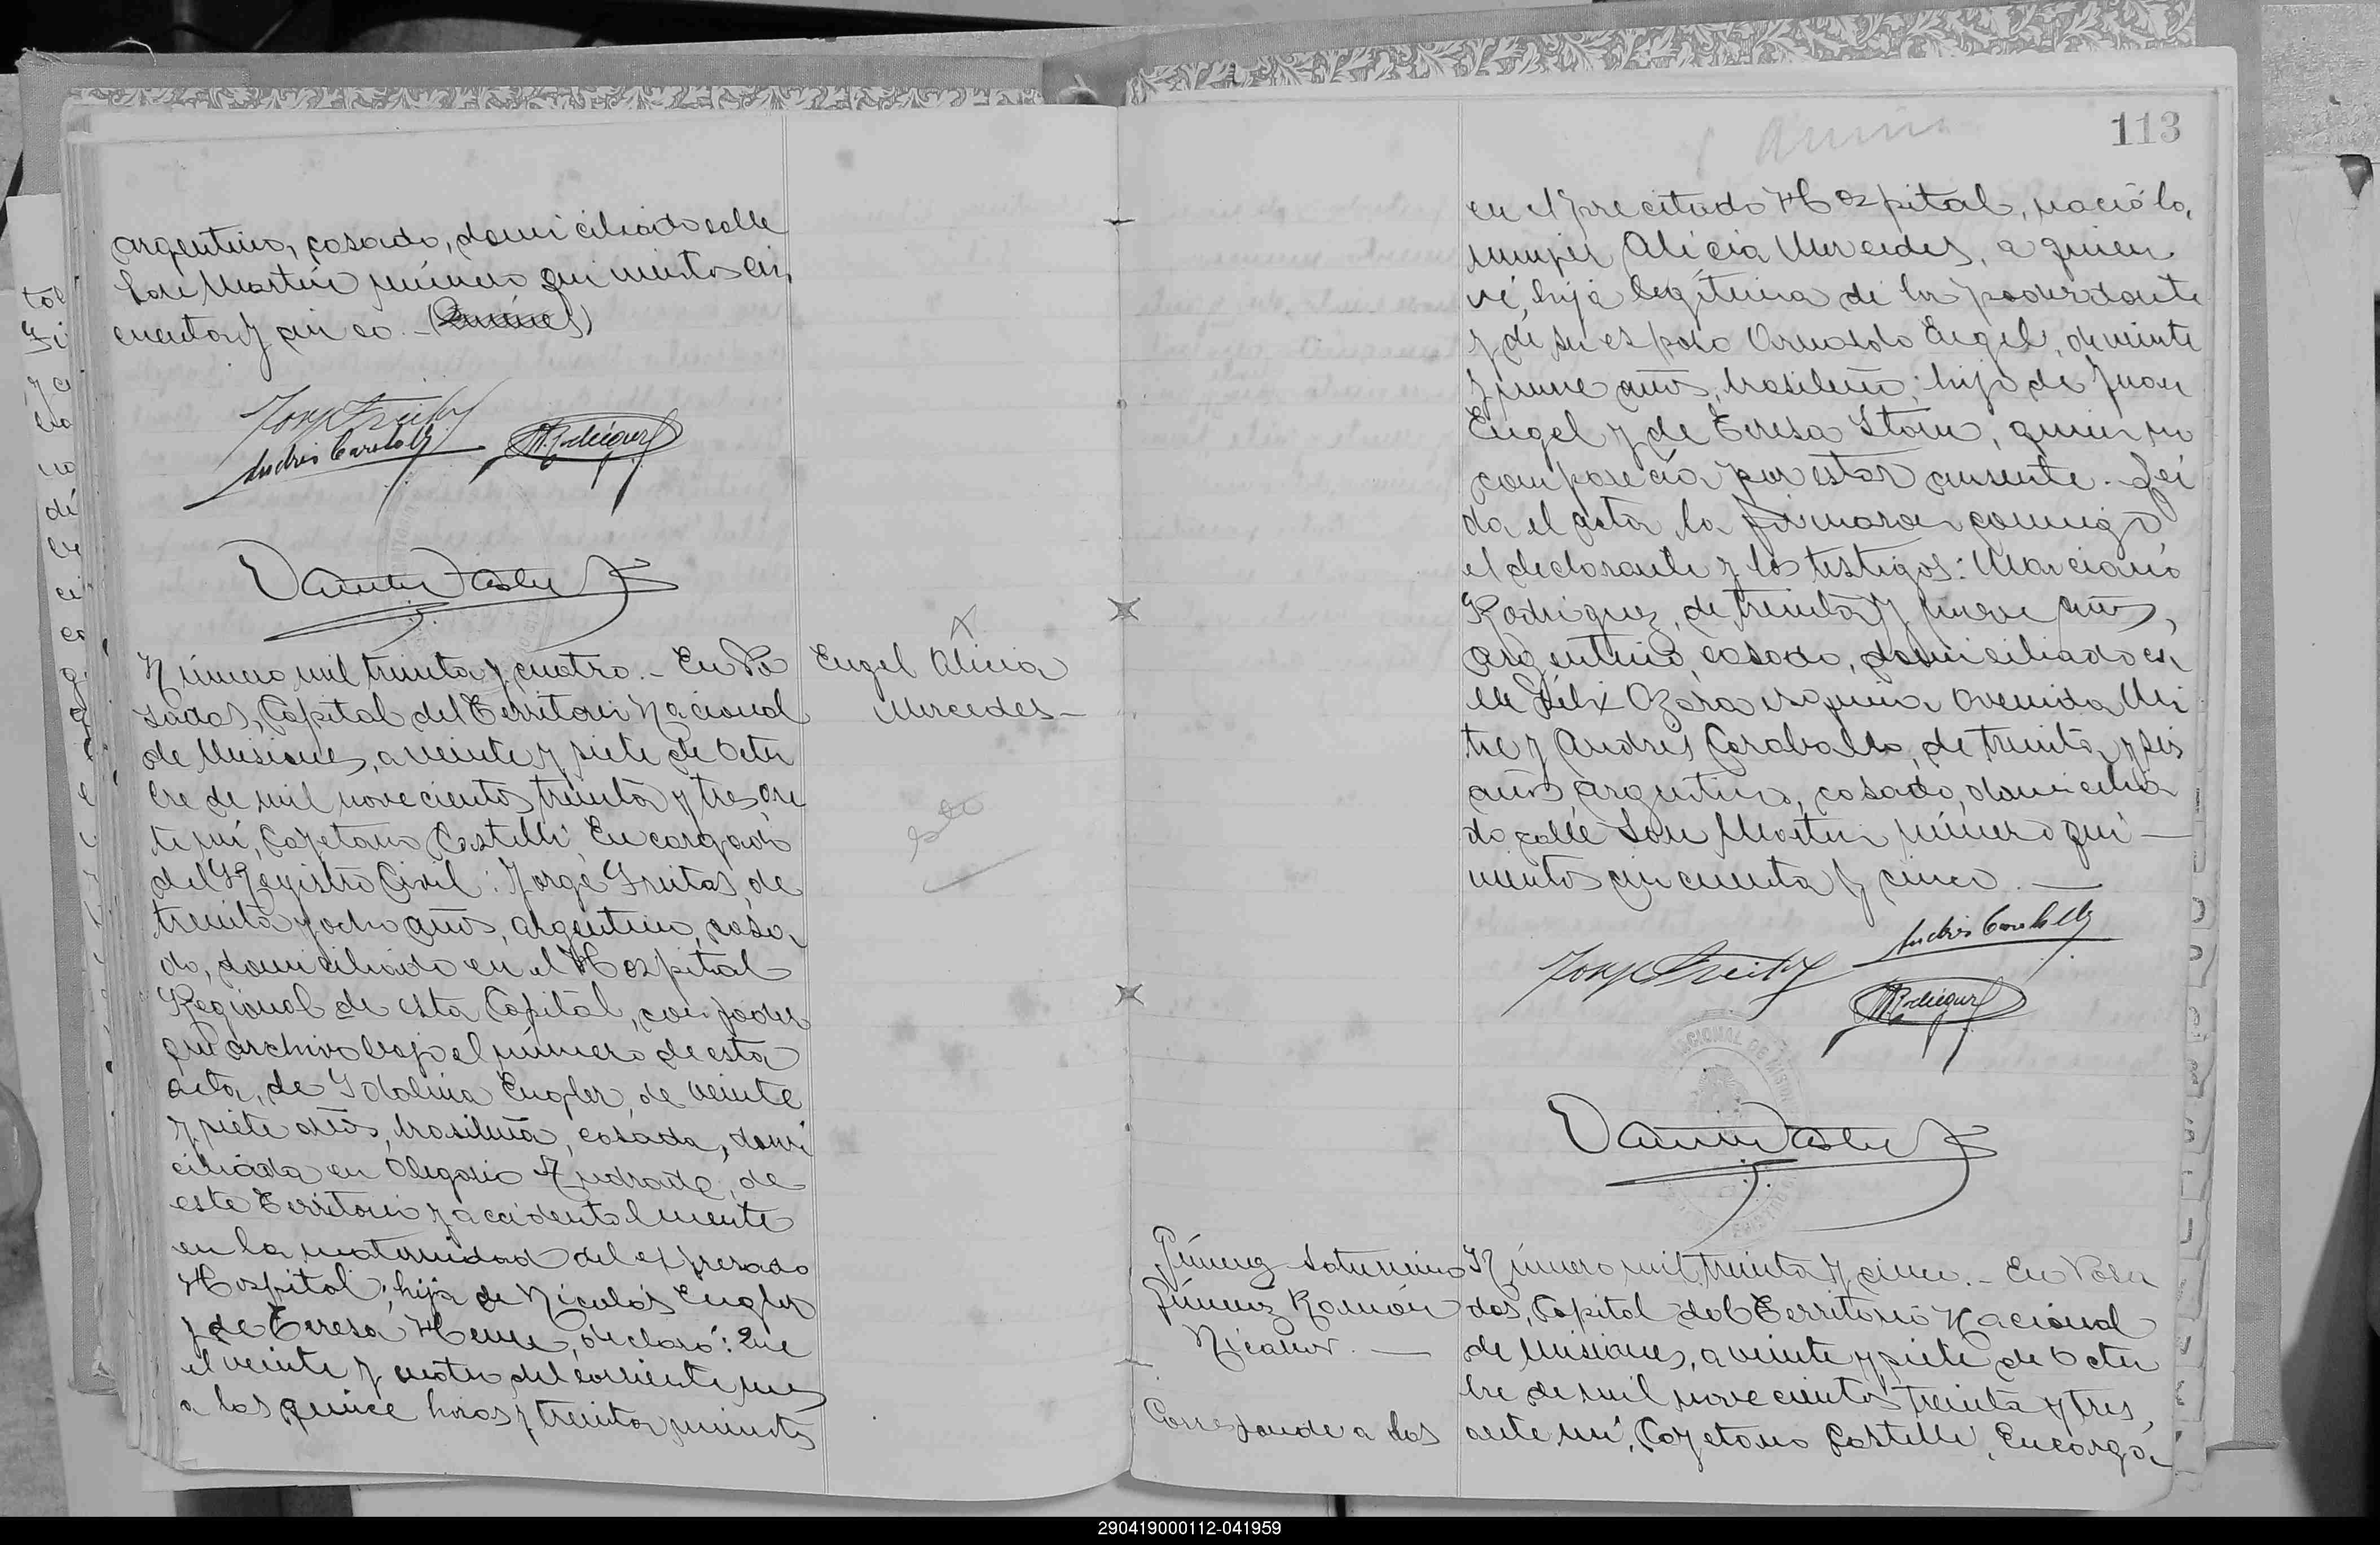 argentino, casado, domiciliado calle
San Martín número quinientos cin
cuenta y cinco.-
Número mil treinta y cuatro.- En Po
sadas, Capital del Territorio Nacional
de Misiones, a veinte y siete de Octu
bre de mil novecientos treinta y tres an
te mí, Cayetano Castelli, Encargado
del Registro Civil: Jorge Freitas, de
treinta y ocho años, argentino, casa
do, domiciliado en el Hospital
Regional de esta Capital, con poder
que archivo bajo el número de esta
acta, de Idalina Engler, de veinte
y siete años, brasileña, casada, domi
ciliada en Olegario Andrade, de
este Territorio y accidentalmente
en la maternidad del expresado
Hospital; hija de Nicolás Engler
y de Teresa declaró: Que
el veinte y cuatro del corriente mes
a las quince horas y treinta minutos
Engel Alicia
Mercedes-
113
en el precitado Hospital, nació la
mujer Alicia Mercedes, a quien
ví, hija legítima de la poderdante
y de su esposo Arnoldo Engel, de veinte
y nueve años, brasileño; hijo de Juan
Engel y de Teresa quien no
comparecía por estar ausente.- Leí
da el acta, la firmaron conmigo
el declarante y los testigos: Marciano
Rodriguez, de treinta y nueve años,
argentino, casado, domiciliado ca
lle Félix Azara esquina Avenida Mi
tre y Andrés Caraballo, de treinta y seis
años, argentino, casado, domicilia
do calle San Martín número qui-
nientos cincuenta y cinco.-
Gimenez Saturnino
Gimenez Ramón
Nicanor.-
Corresponde a los
Número mil treinta y cinco.- En Posa
das, Capital del Territorio Nacional
de Misiones, a veinte y siete de Octu
bre de mil novecientos treinta y tres,
ante mí, Cayetano Castelli, Encarga
290419000112-041959